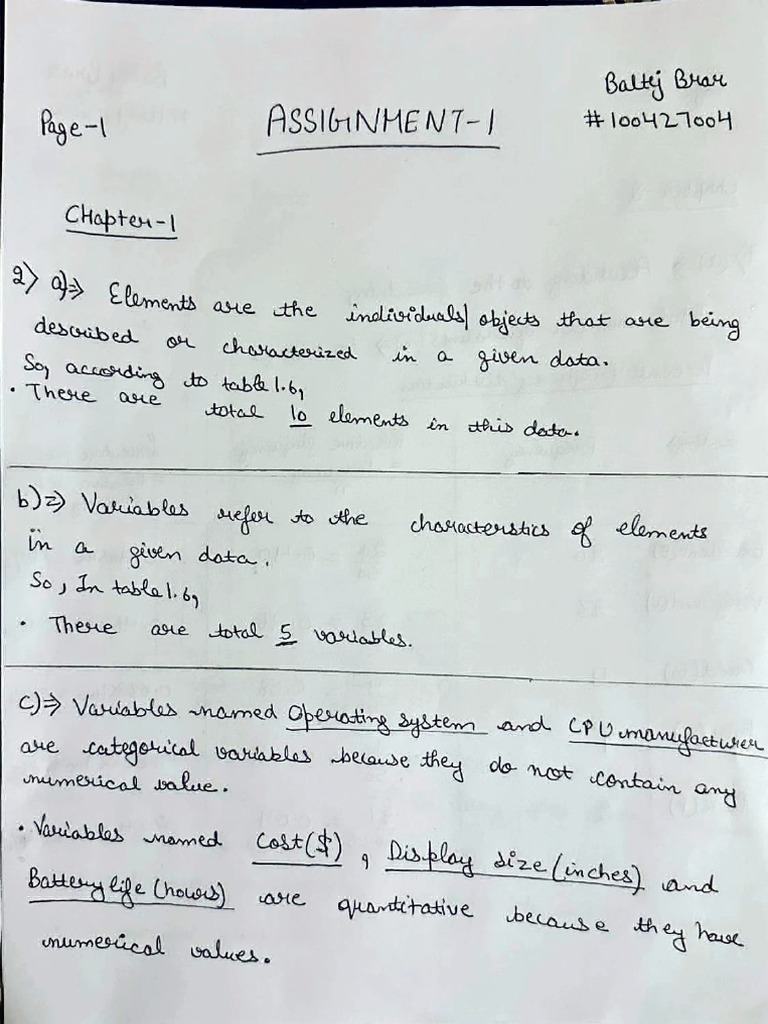 Baltej Brar
Page-1 ASSIGNMENT-1 #100427004
CHapter-1
2) a)⇒ Elements are the individuals/objects that are being
described or characterized in a given data.
So, according to table 1.6,
• There are total 10 elements in this data.
b)⇒ Variables refer to the characterstics of elements
in a given data.
So, In table 1.6,
• There are total 5 variables.
c)⇒ Variables named Operating system and CPU manufacturer
are categorical variables because they do not contain any
numerical value.
• Variables named Cost($), Display size (inches) and
Battery life (hours) are quantitative because they have
numerical values.